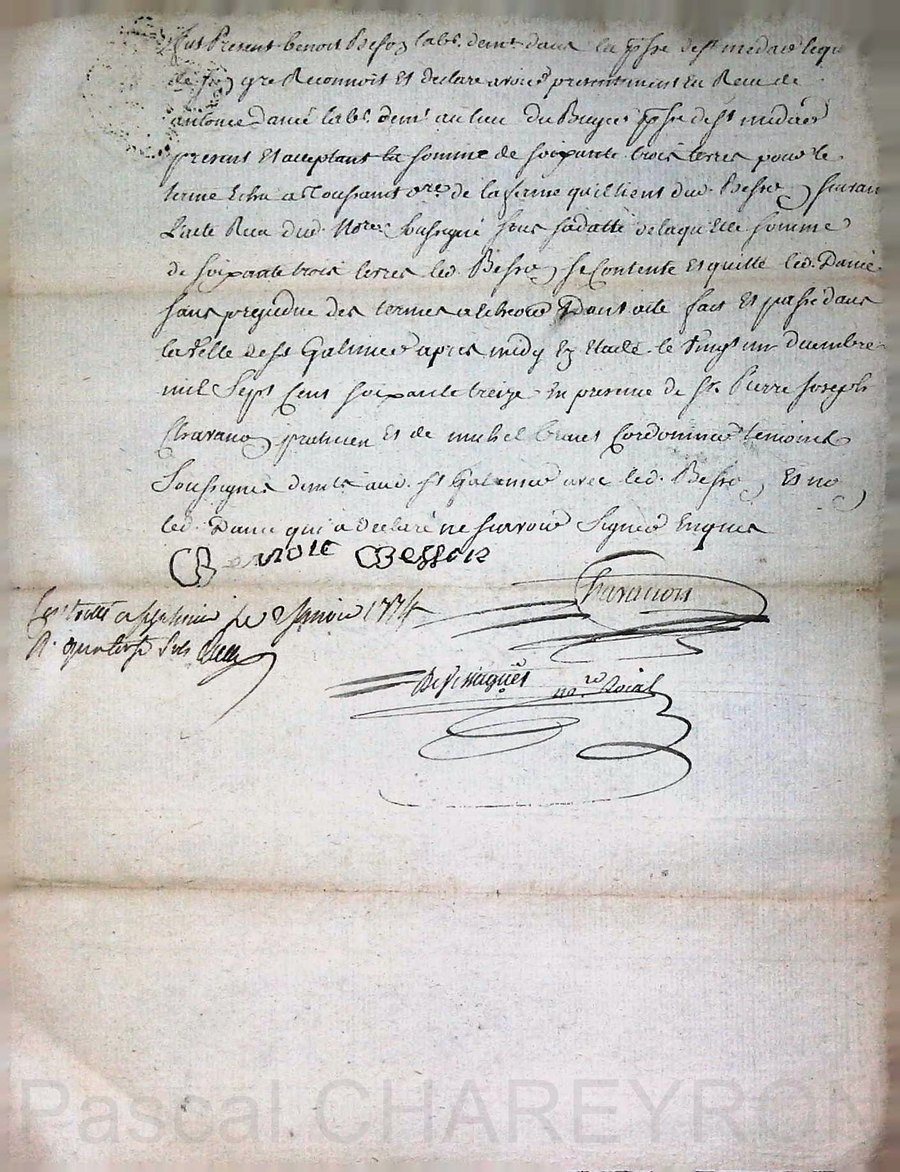 fut Present benoit Besson labr. demt. dans la psse de st. medard lequel
de son gre Reconnoit Et declare avoir presentement Eu Receu de
antoine Danié labr. demt. au lieu Du Buyer psse de st medard
present Et acceptant la somme de soixante trois livres pour le
terme Echu a Toussaint dre. de la ferme quil tient dud. Besson suivan
L'acte Receu dud. Nore. soussigné sous sa datte de laquelle somme
de soixante trois livres led. Besson se Contente Et quitte led. Danié
sans prejudice des termes a echeoir Dont acte fait Et passé dans
la ville de st Galmier apres midy En Etude le vingt un decembre
mil Sept Cent soixante treize En presence de Sr. Pierre Joseph
Chavanon praticien Et de michel Cordonnier temoins
Soussignés demts. aud. st Galmier avec led. Besson, Et non
led. Danié qui a declaré ne scavoir Signer Enquis
Benoit Besson
Chavanon
a st galmier le 2 janvier 1774
R. quatorze sols
nore. Roial
Pascal CHAREYRON